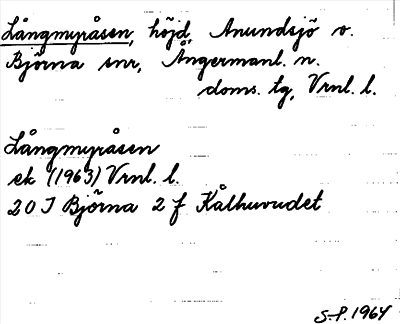 Långmyråsen, höjd, Anundsjö o.
Björna snr, Ångermanl. n.
doms. tg, Vrnl. l.
Långmyråsen
ek (1963) Vrnl. l.
20 I Björna 2 f Kålhuvudet
S.P. 1964